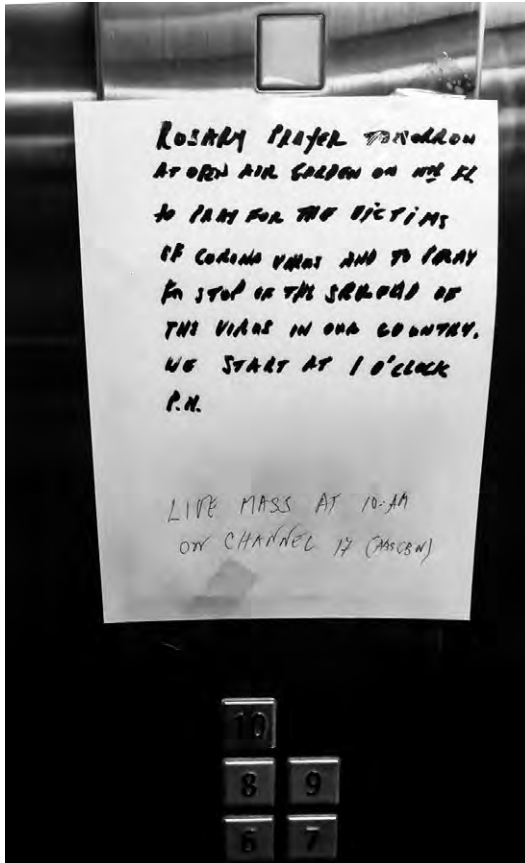 ROSARY PRAYER TOMORROW
AT OPEN AIR GARDEN ON
TO PRAY FOR THE VICTIMS
OF CORONA VIRUS AND TO PRAY
STOP OF THE SPREAD OF
THE VIRUS IN OUR COUNTRY.
WE START AT 1 O'CLOCK
P.M.
LIVE MASS AT 10:AM
ON CHANNEL 17
10
8 9
6 7